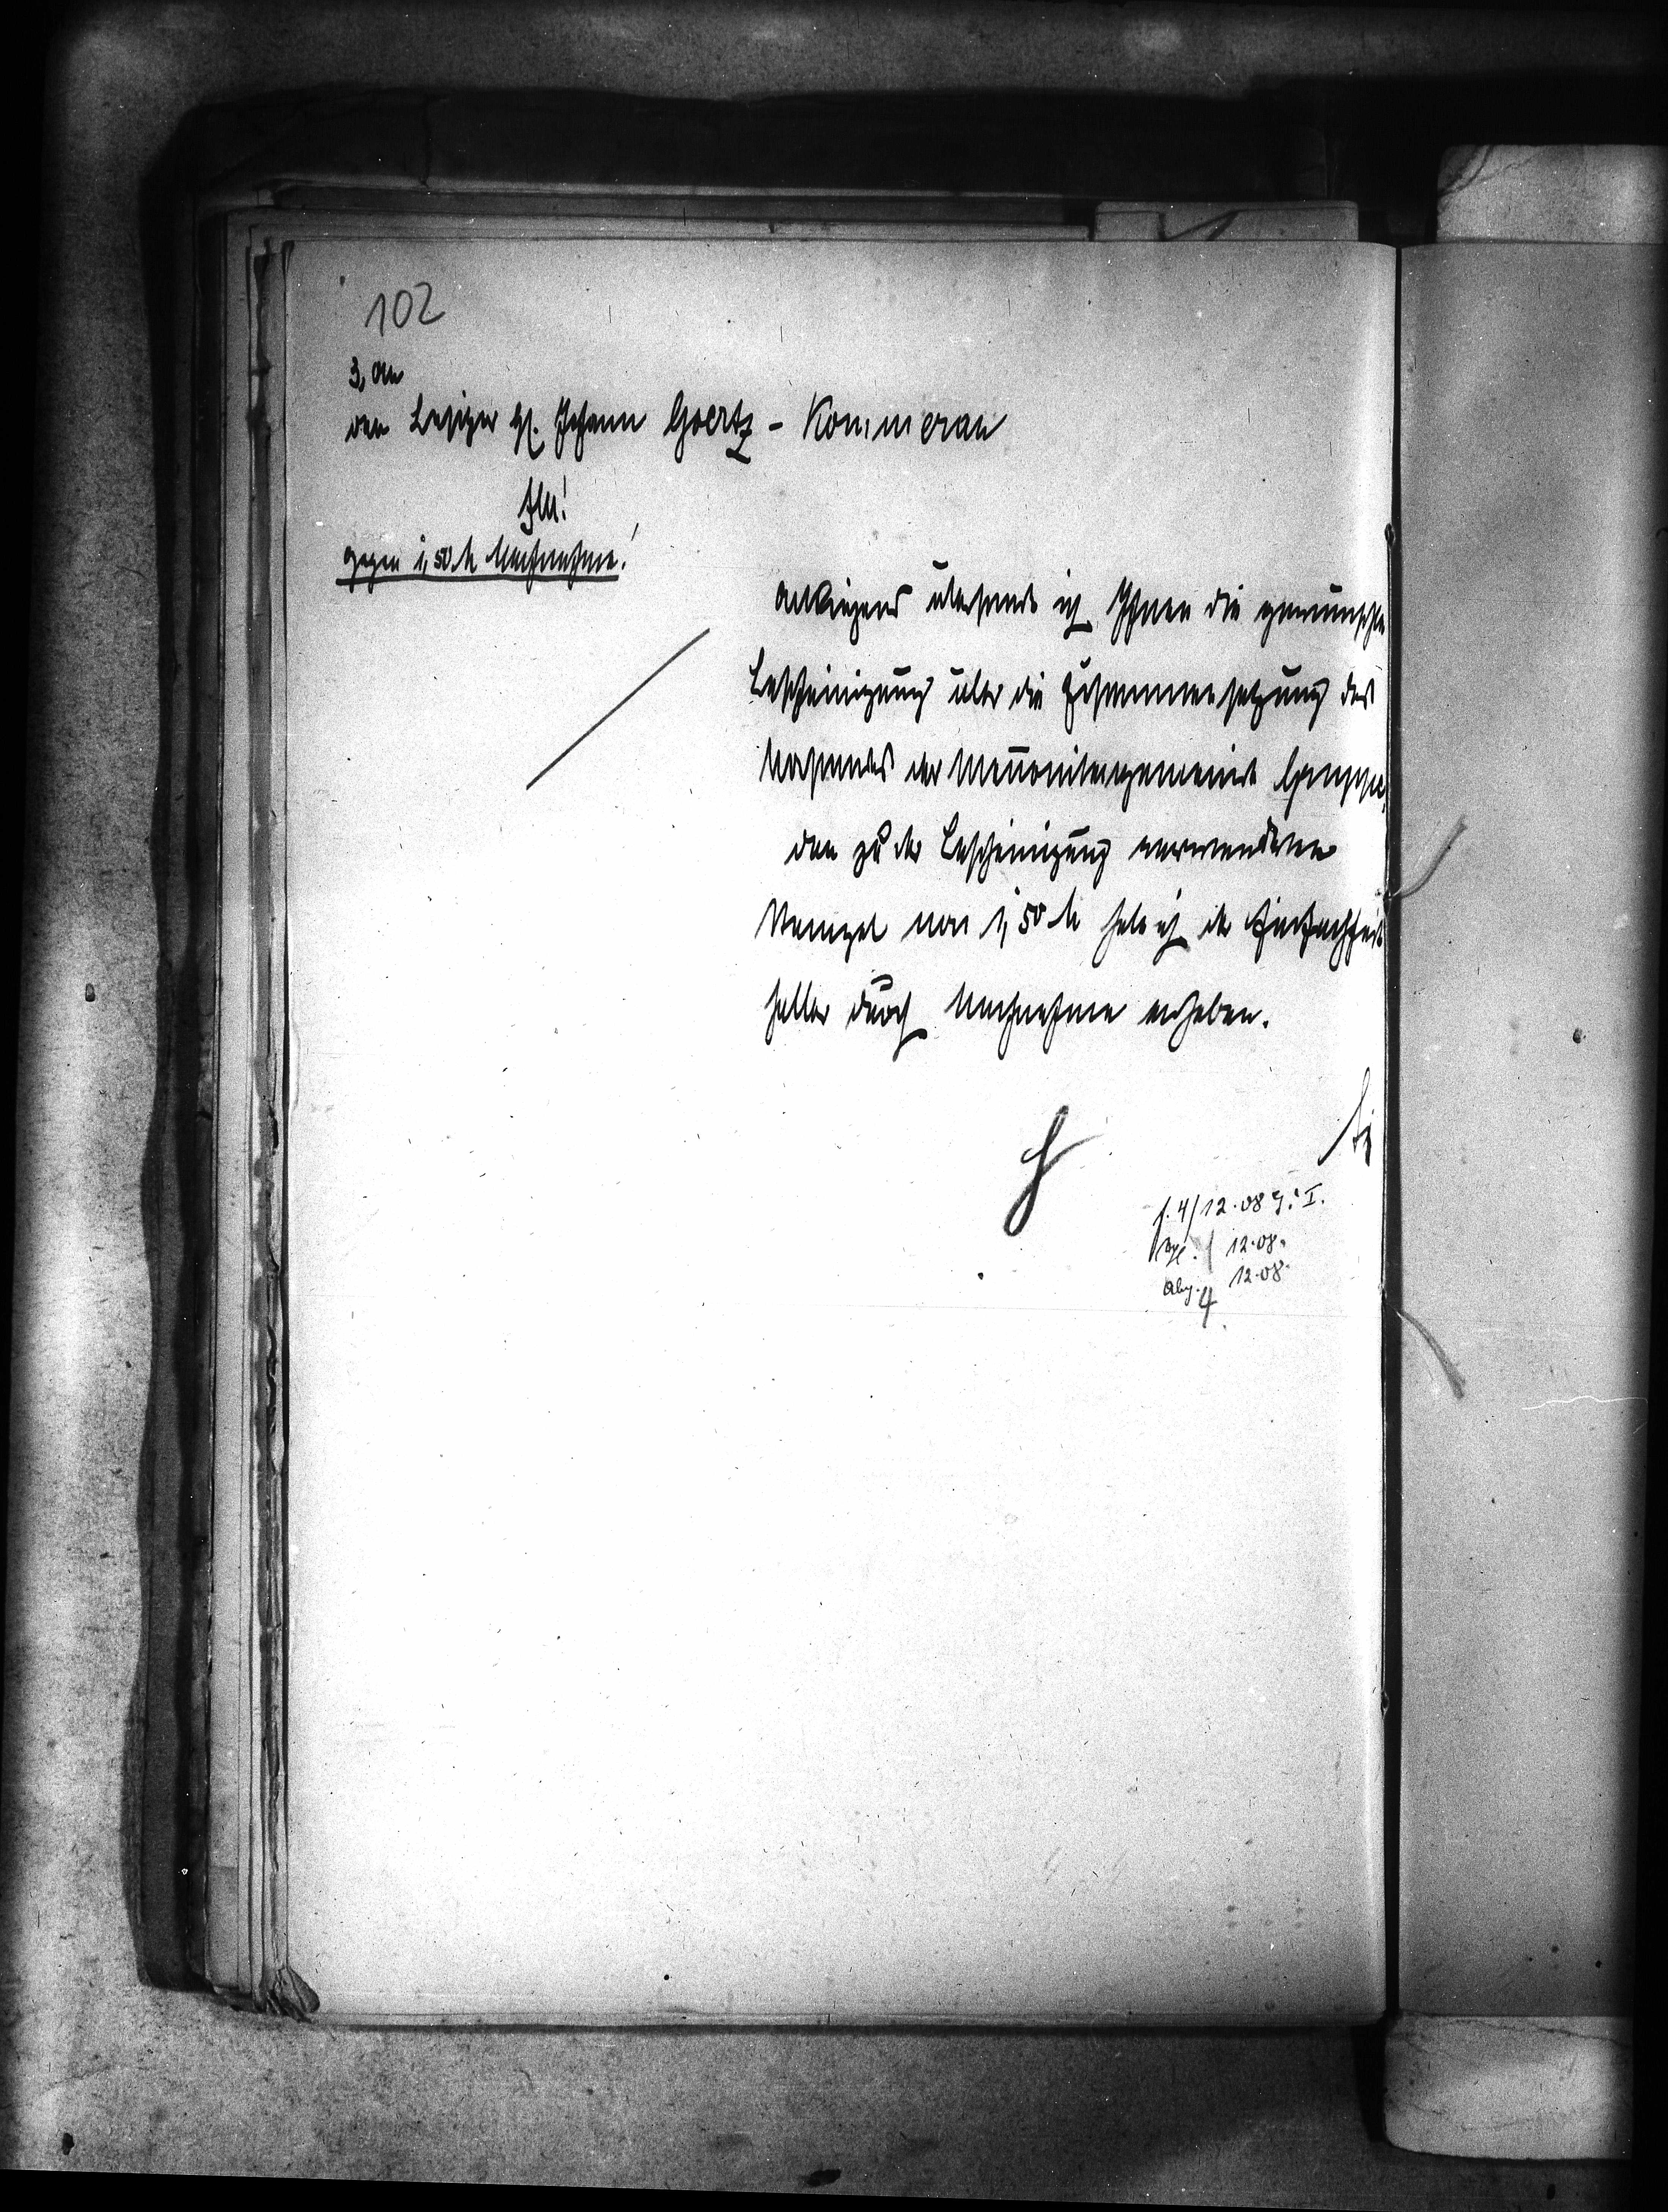 102
3, An
den Besitzer H. Johann Goertz - Kommerau
hier!
gegen 1,50 M Nachnahme!
Anliegend übersende ich Ihnen die gewünschte
Bescheinigung über die Zusammensetzung des
Vorstandes der Mennonitengemeinde Gruppe.
Den zu der Bescheinigung verwendeten
Stempel von 1,50 M habe ich der Einfachheit
halber durch Nachnahme erheben.
f. 4/12.08 I.
12.08.
Abg. 4 12.08.